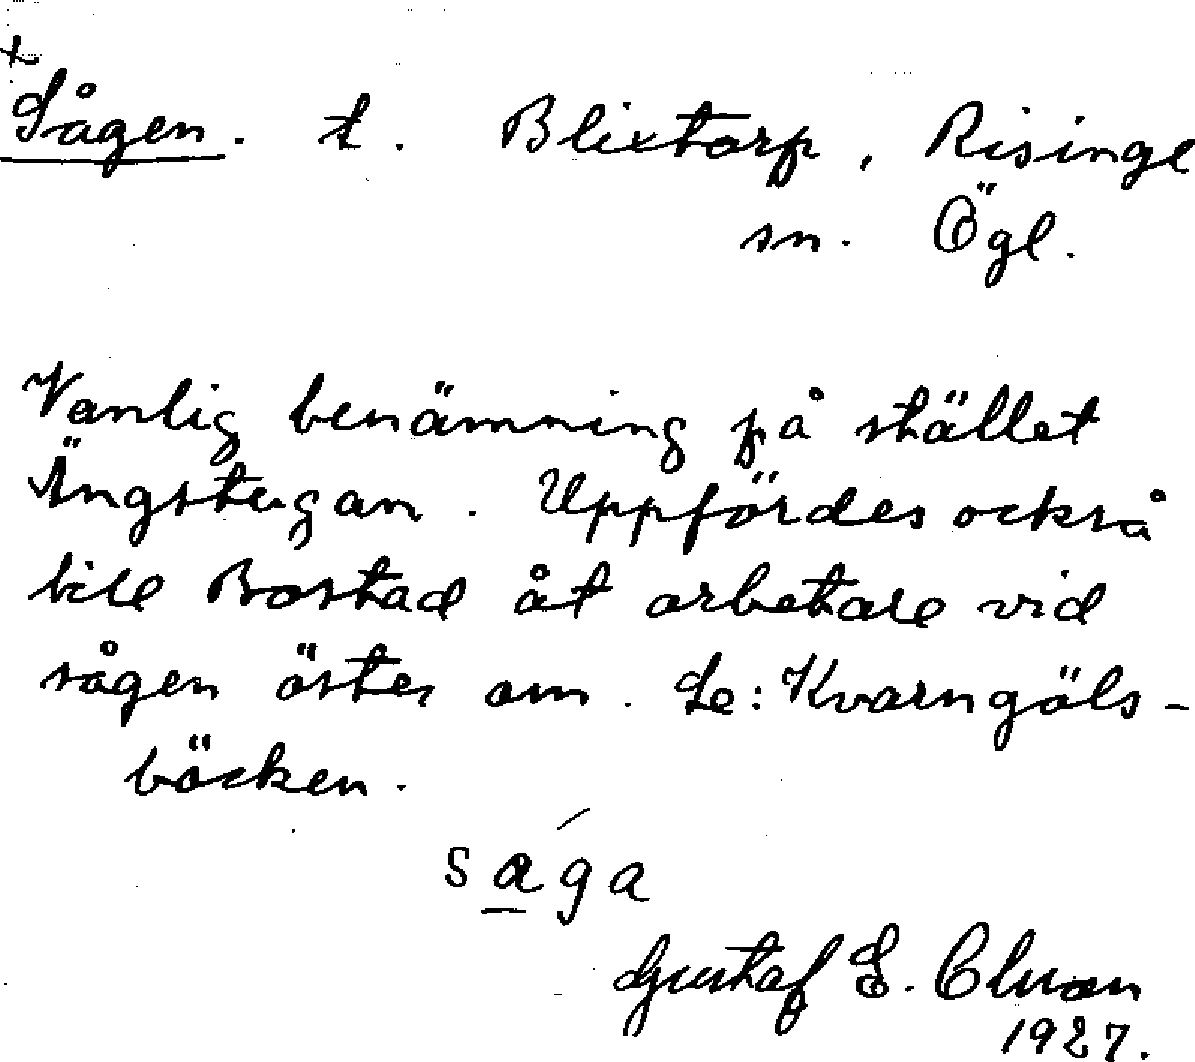 x
Sågen. t. Blixtorp, Risinge
sn. Ögl.
Vanlig benämning på stället
Ängstugan. Uppfördes också
till Bostad åt arbetare vid
sågen öster om. Se: Kvarngöls-
bäcken.
sága
Gustaf E.
1927.